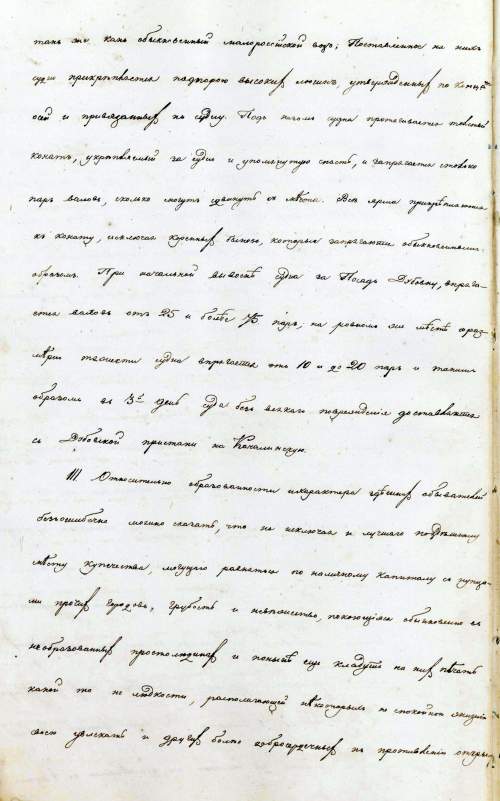 такъ же какъ обыкновенный малороссiйской возъ; Поставленное на нихъ
судно прикрѣпляется подпорою высокихъ люшнъ, утвержденныхъ по концамъ
осей и привязанныхъ къ судну. Подъ низомъ судна протягивается толстый
канатъ, укрѣпляемый за судно и упомянутую снасть, и запрягается столько
паръ воловъ, сколько могутъ сдвинуть съ мѣста. Всѣ ярма прикрѣпляются
къ канату, исключая коренныхъ быковъ, которые запрягаются обыкновеннымъ
образомъ. При начальной вывозкѣ судна за Посадъ Дубовку, впряга-
ется воловъ отъ 25 и болѣе 75 паръ; на ровномъ же мѣстѣ сораз-
мѣрно тяжести судна впрягается отъ 10 и до 20 паръ и такимъ
образомъ въ 3й день суда безъ всякаго поврежденiя доставляются
съ Дубовской пристани на Качалинскую.
III Относительно образованности и характера здѣшнихъ обывателей
безъошибочно можно сказать, что не исключая и лучшаго по здѣшнему
мѣсту купечества, могущаго равняться по наличному капиталу съ купца-
ми прочихъ городовъ, грубость и невѣжество, покоющiяся обыкновенно въ
необразованныхъ простолюдинахъ и понынѣ еще кладутъ на нихъ печать
какой то не людкости, располагающей нѣкоторыхъ къ спокойной жизни
свою увлекать и другихъ болѣе добросердечныхъ къ противленiю